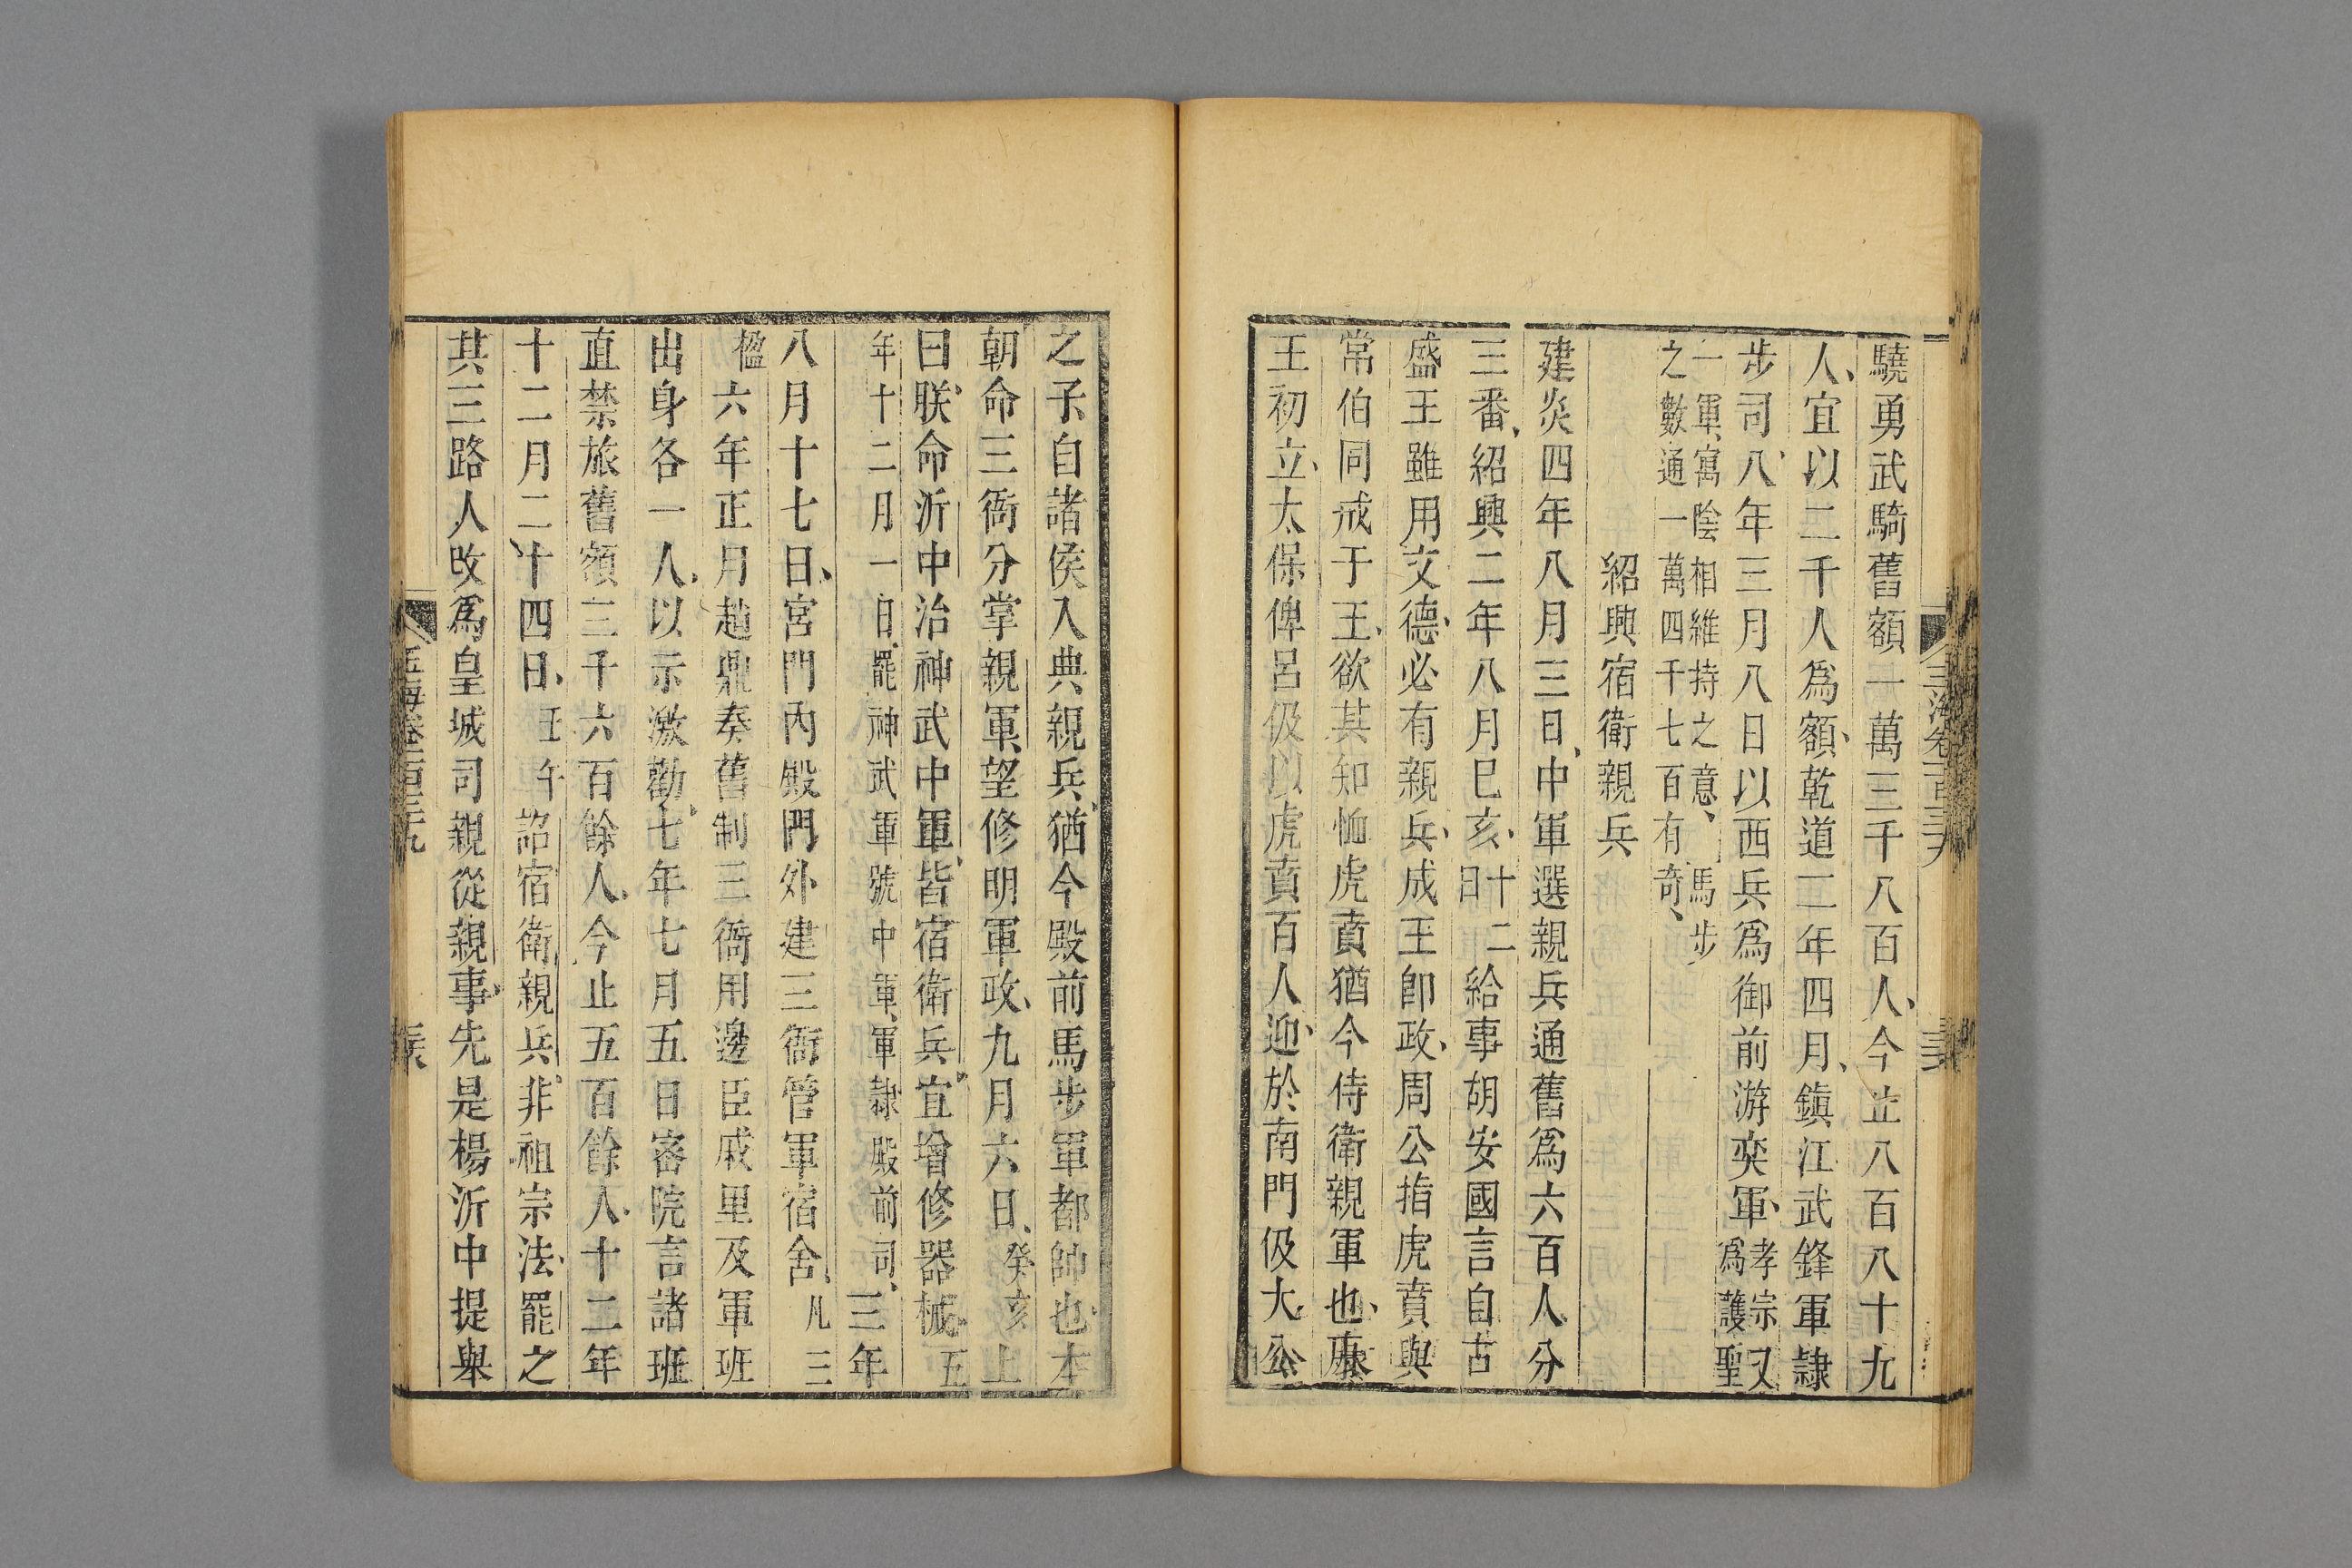 驍勇武騎舊額一萬三千八百人今止八百八十九
人宜以二千人爲額乾道二年四月鎭江武鋒軍隷
步司八年三月八日以西兵爲御前游奕軍孝宗又
爲護聖
一軍寓陰相維持之意馬步
之數通一萬四千七百有奇
紹興宿衛親兵
建炎四年八月三日中軍選親兵通舊爲六百人分
三番紹興二年八月巳亥十二
日給事胡安國言自古
盛王雖用文德必有親兵成王卽政周公指虎賁與
常伯同戒于王欲其知恤虎賁猶今侍衛親軍也康
王初立太保俾呂伋以虎賁百人迎於南門伋太公
之子自諸侯入典親兵猶今殿前馬步軍都帥也本
朝命三衙分掌親軍望修明軍政九月六日癸亥上
曰朕命沂中治神武中軍皆宿衛兵宜增修器械五
年十二月一日罷神武軍號中軍軍隷殿前司三年
八月十七日宮門內殿門外建三衙管軍宿舍凡三
楹六年正月趙鼎奏舊制三衙用邊臣戚里及軍班
出身各一人以示激勸七年七月五日密院言諸班
直禁旅舊額三千六百餘人今止五百餘人十二年
十二月二十四日壬午詔宿衛親兵非祖宗法罷之
其三路人改爲皇城司親從親事先是楊沂中提舉
玉海卷一百三十九